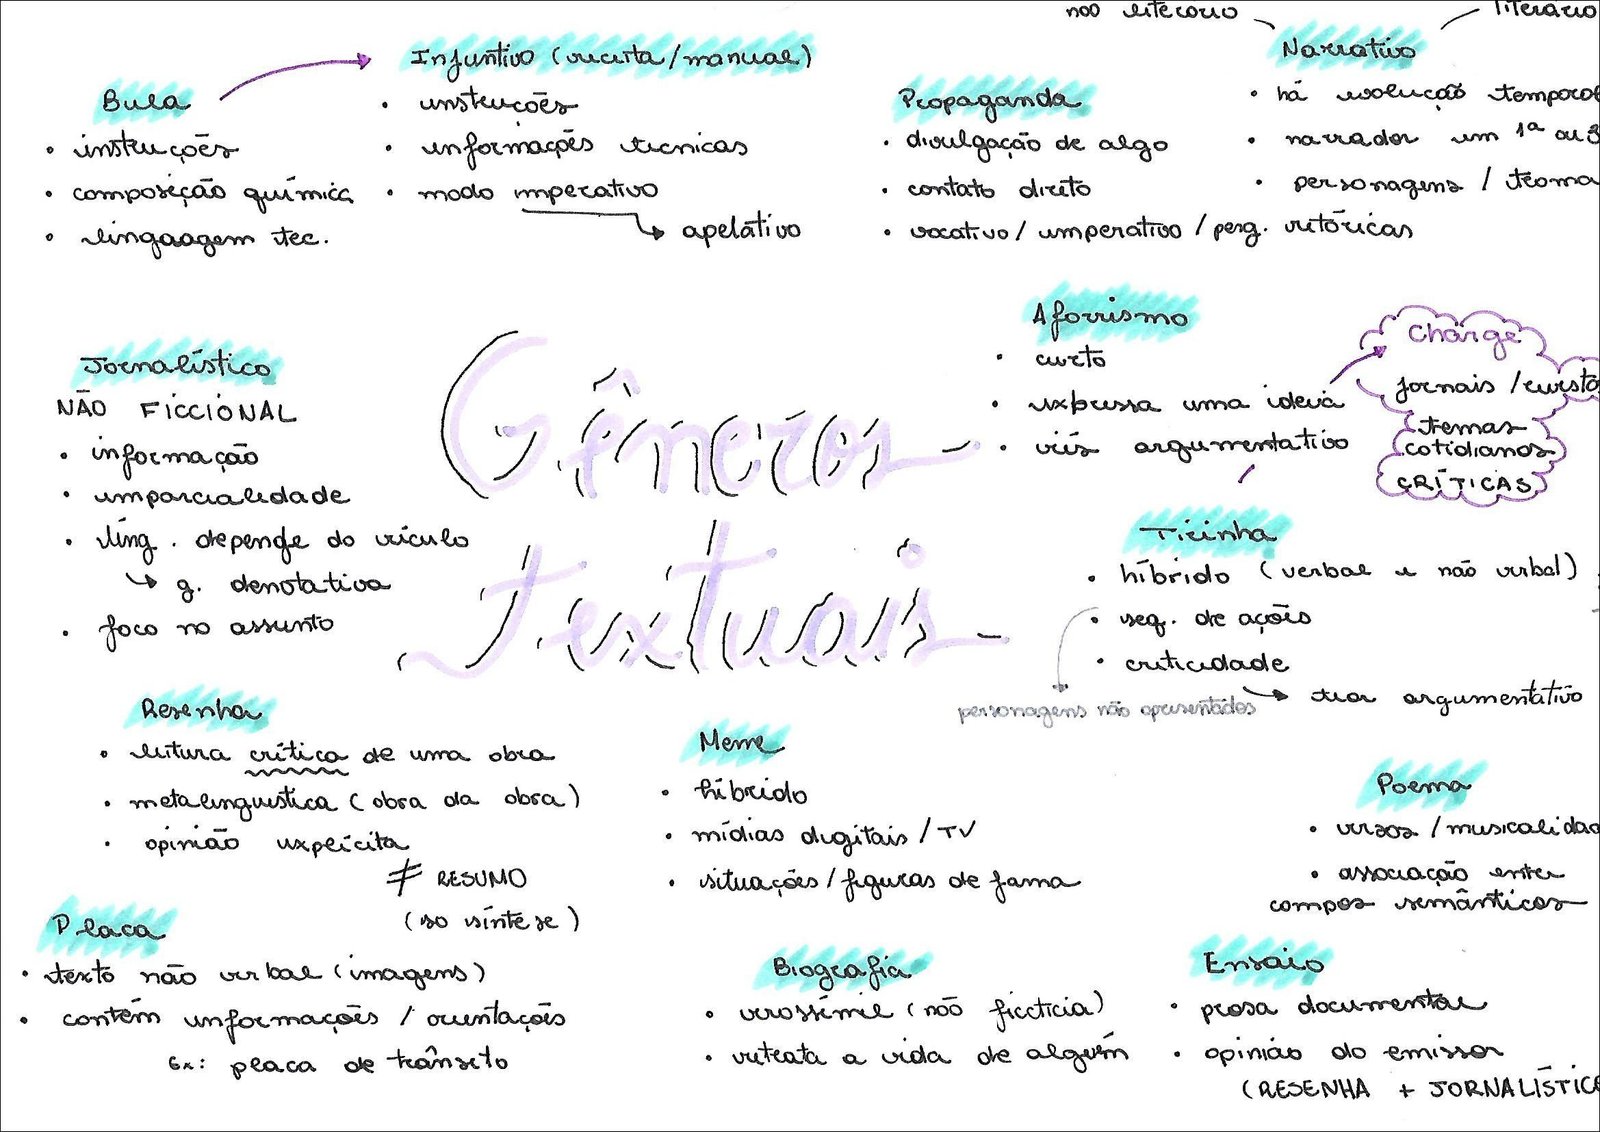 não literário
literário
Narrativo
há evolução temporal
narrador em 1ª ou 3
personagens / trama
Injuntivo (receita/manual)
instruções
informações técnicas
modo imperativo
apelativo
Bula
instruções
composição química
linguagem tec.
Propaganda
divulgação de algo
contato direto
vocativo / imperativo / perg. retóricas
Aforrismo
curto
expressa uma ideia
viés argumentativo
Charge
jornais / revista
temas
cotidianos
CRÍTICAS
Jornalístico
NÃO FICCIONAL
informação
imparcialidade
ling. depende do veículo
g. denotativa
foco no assunto
Gêneros
Textuais
Tirinha
híbrido (verbal e não verbal)
seq. de ações
criticidade
teor argumentativo
personagens não apresentados
Resenha
leitura crítica de uma obra
metalinguística (obra da obra)
opinião explícita
≠ RESUMO
(só síntese)
Meme
híbrido
mídias digitais / TV
situações / figuras de fama
Poema
versos / musicalidad
associação entre
campos semânticos
Placa
texto não verbal (imagens)
contém informações / orientações
Ex: placa de trânsito
Biografia
verossímil (não fictícia)
retrata a vida de alguém
Ensaio
prosa documental
opinião do emissor
(RESENHA + JORNALÍSTICO